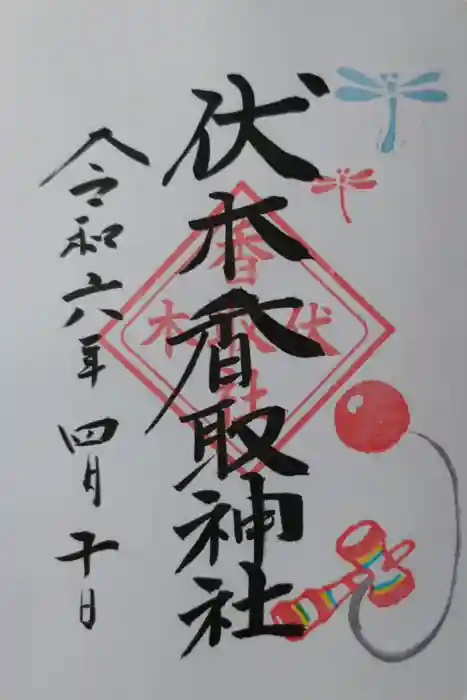 伏木香取神社
令和六年 四月十日
香取
伏木
神社